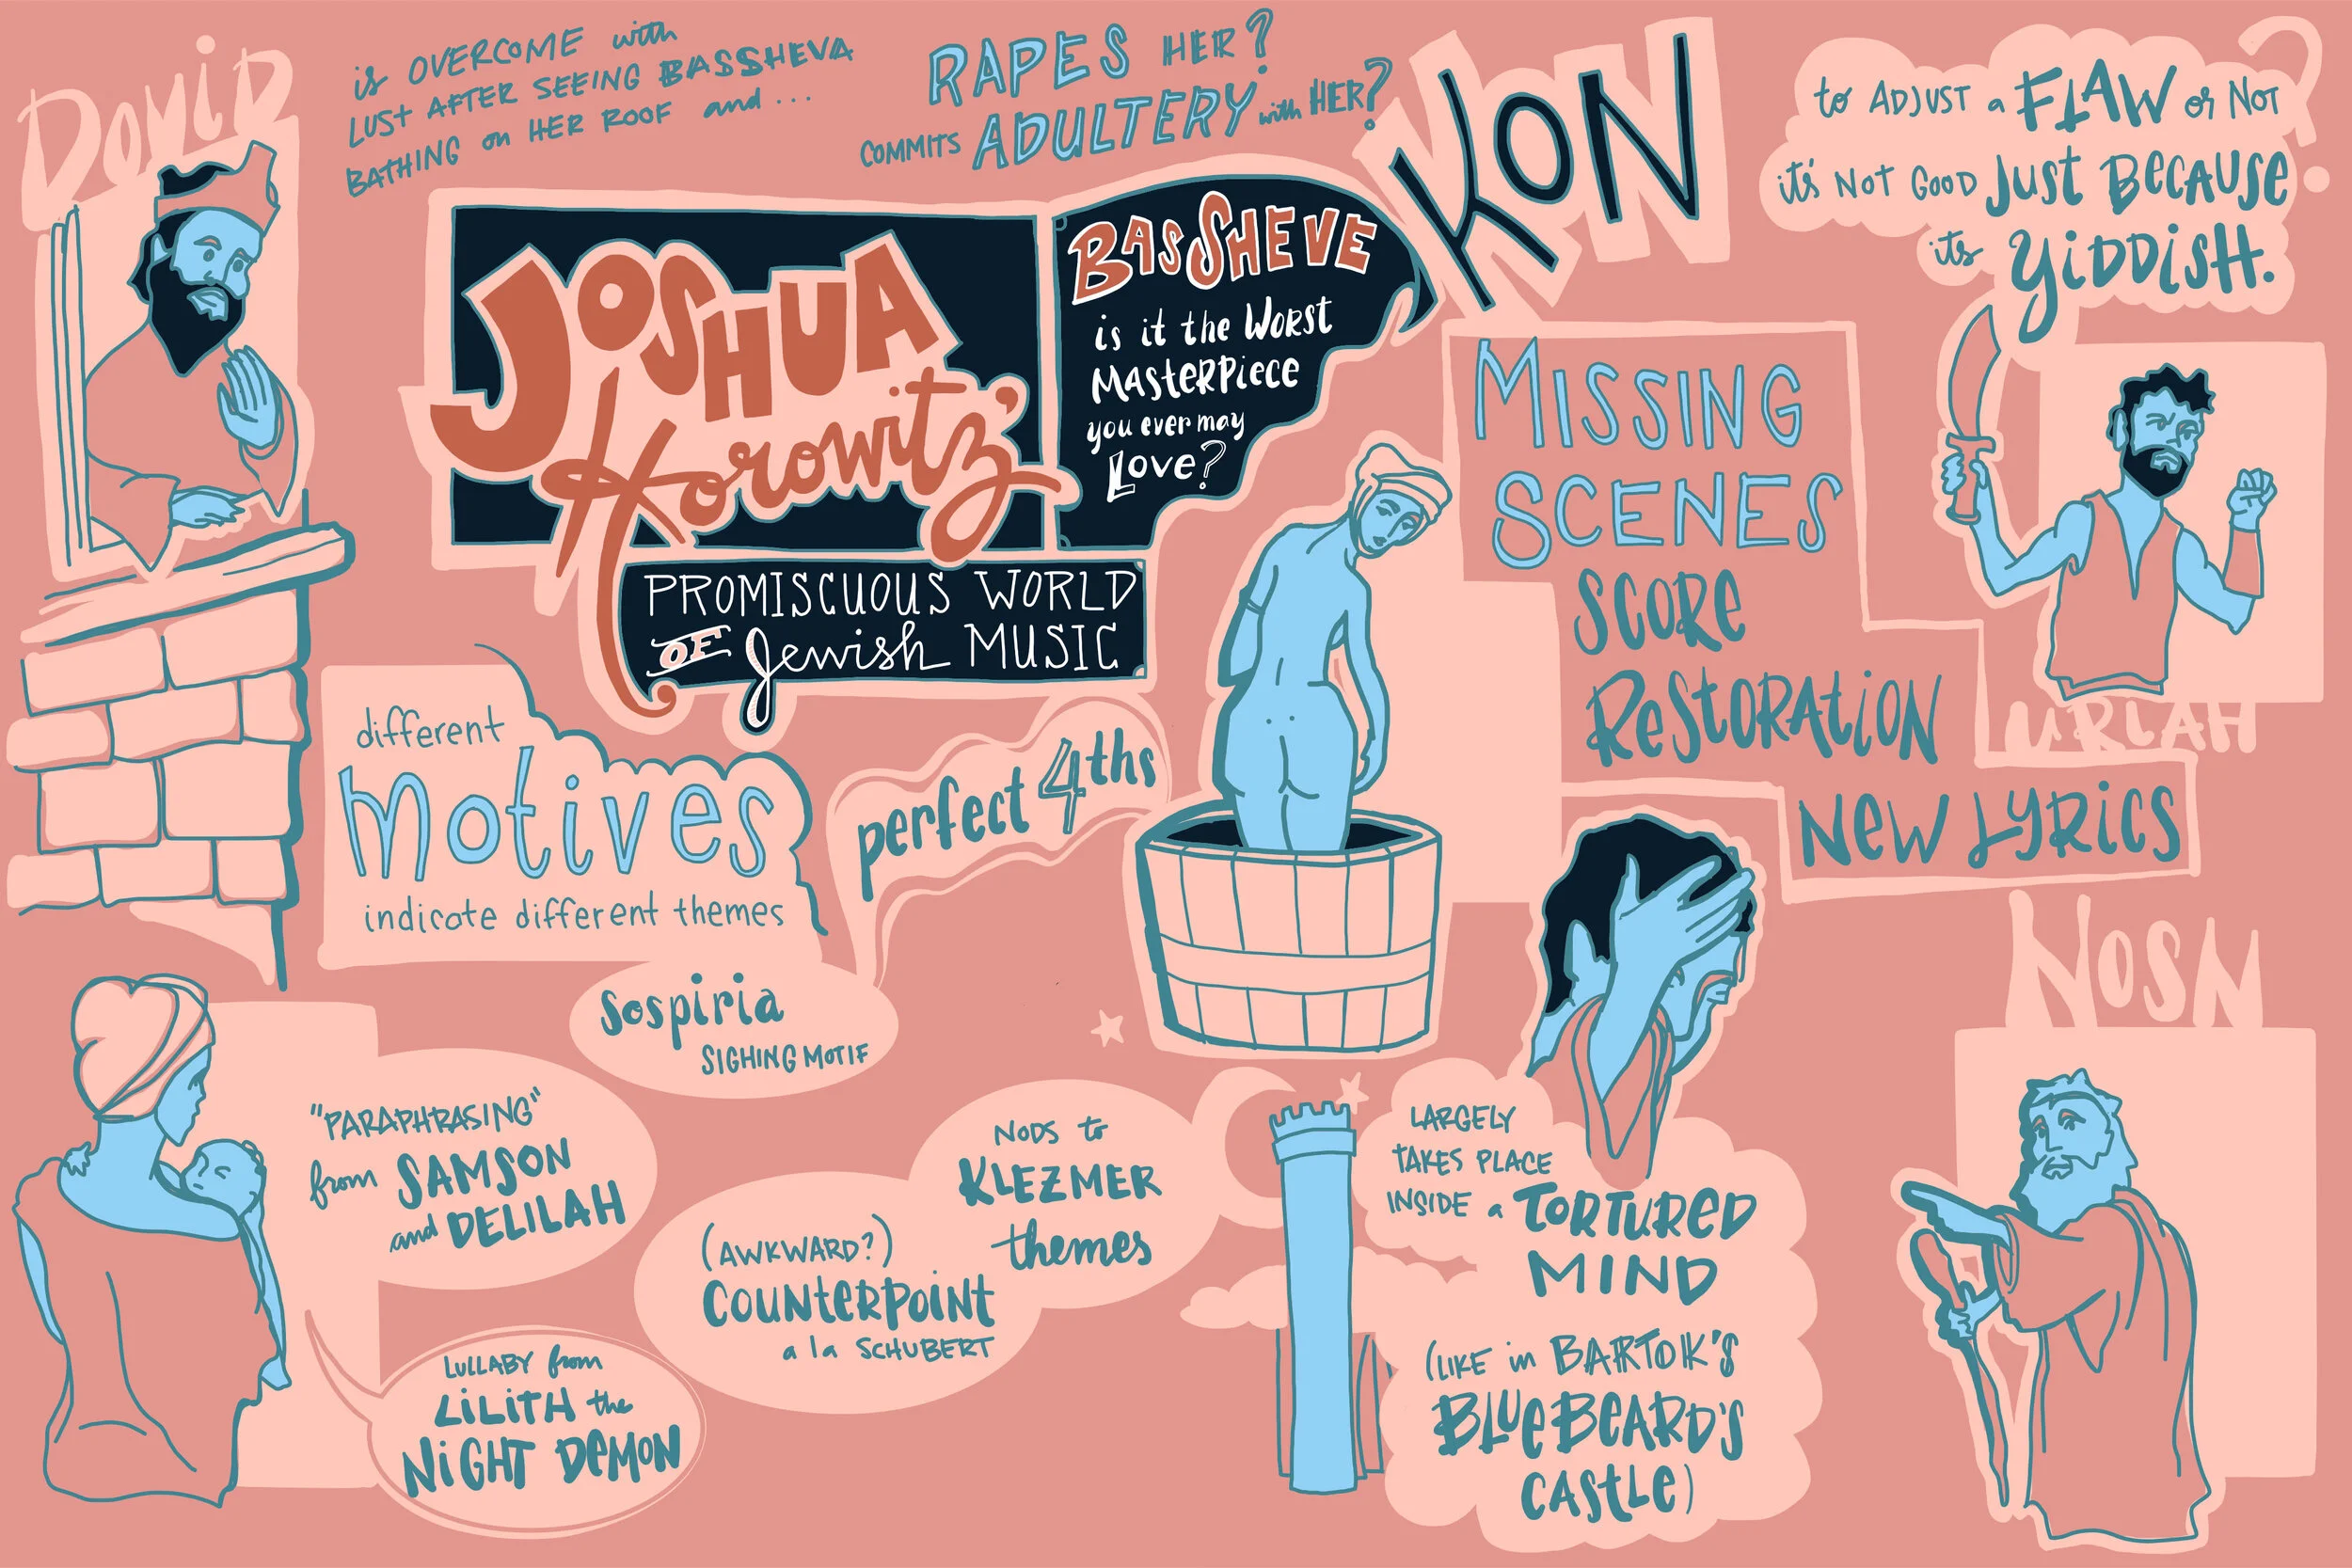 DOViD
is OVERCOME with
LUST AFTER SEEING BASSHEVA
BATHING on HER ROOF and ...
RAPES HER?
COMMITS ADULTERY with HER?
KON
to ADJUST a FLAW or NOT?
it's NOT GOOD Just BECAUSE
its YiDDisH.
JOSHUA
Horowitz'
PROMISCUOUS WORLD
OF Jewish MUSIC
BASSHEVE
is it the WORST
MASterPiece
you ever may
Love?
MISSING
SCENES
SCORE
ReStORAtiON
NeW LyRics
URIAH
different
motives
indicate different themes
perfect 4ths
Sospiria
SIGHING MOTIF
NOSN
"PARAPHRASING"
from SAMSON
and DELILAH
LULLABY from
LiLiTH the
NiGHT DeMON
(AWKWARD?)
COUNterPOint
a la SCHUBERT
NODS to
KLEZMER
themes
LARGELY
TAKES PLACE
INSIDE a TORTURED
MIND
(LIKE in BARTOK'S
BLUEBEARD'S
CAStLe)